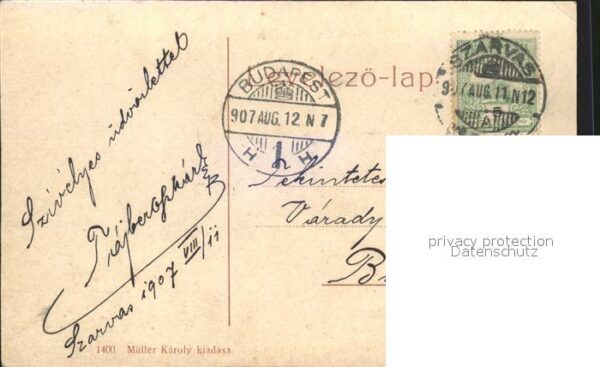 Szívélyes üdvözlettel
Szarvas 1907 VIII/11
1400. Müller Károly kiadása.
Levelező-lap.
BUDAPEST
907 AUG. 12 N 7
SZARVAS
907 AUG. 11. N 12
A
Tekintetes
Várady
B
privacy protection
Datenschutz